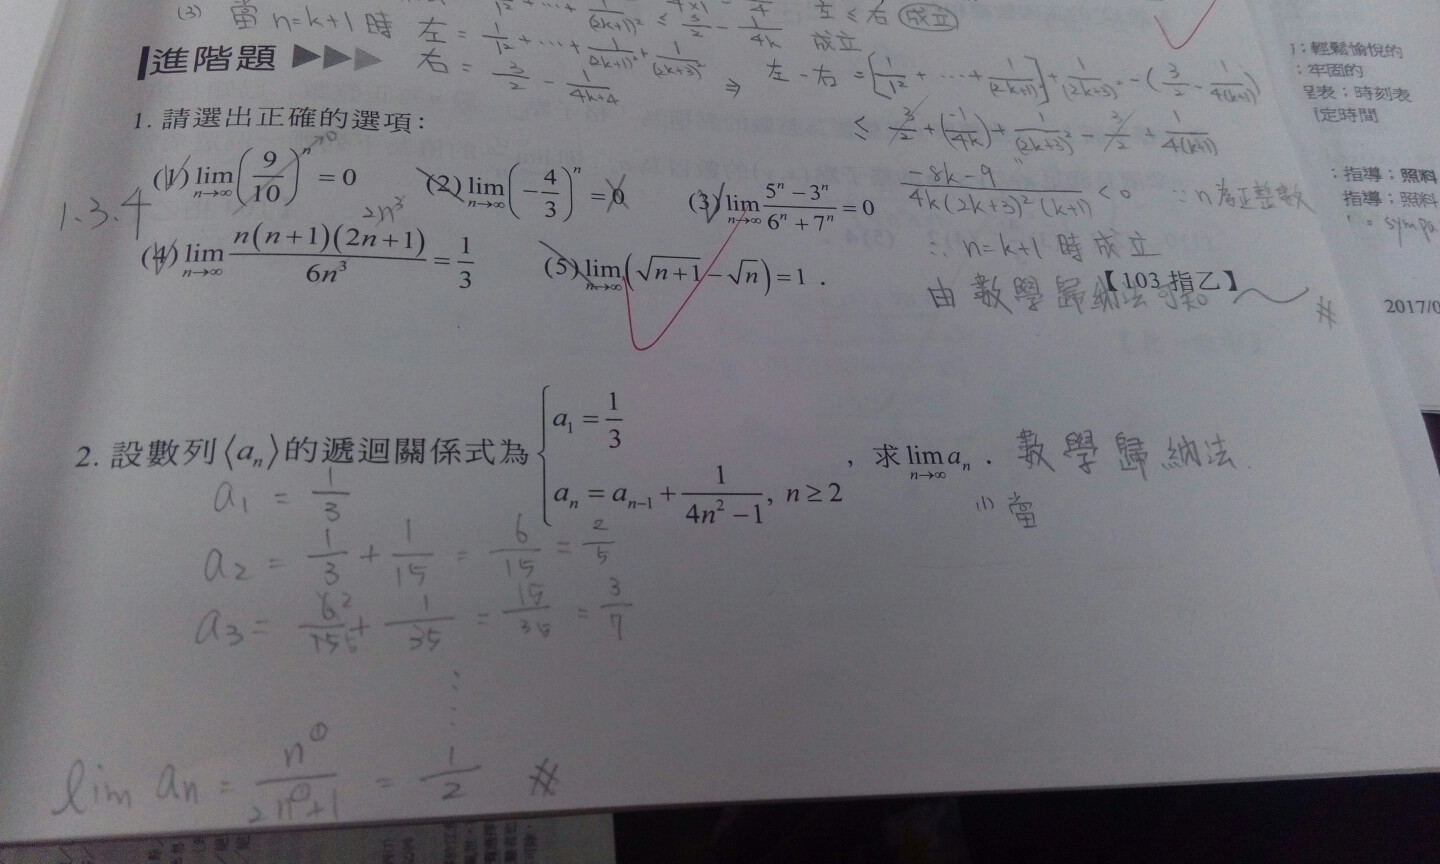 (3) 當 n=k+1 時
左 = 1/1² + ⋯ + 1/(2k+1)² + 1/(2k+3)²
右 = 3/2 - 1/(4k+4)
左 ≤ 右 成立
成立
⇒ 左 - 右 = [1/1² + ⋯ + 1/(2k+1)²] + 1/(2k+3)² - (3/2 - 1/4(k+1))
≤ 3/2 + (1/4k) + 1/(2k+3)² - 3/2 + 1/4(k+1)
(-8k-9)/(4k(2k+3)²(k+1)) < 0 ∵ n 為正整數
∴ n=k+1 時成立
由數學歸納法可知 #
進階題
1. 請選出正確的選項:
(1) lim n→∞ (9/10)ⁿ = 0 (2) lim n→∞ (-4/3)ⁿ = 0 (3) lim n→∞ (5ⁿ-3ⁿ)/(6ⁿ+7ⁿ) = 0
1.3.4
2n³
(4) lim n→∞ n(n+1)(2n+1)/6n³ = 1/3 (5) lim n→∞ (√(n+1) - √n) = 1 .
【103 指乙】
2. 設數列⟨aₙ⟩的遞迴關係式為 { a₁ = 1/3
aₙ = aₙ₋₁ + 1/(4n²-1), n ≥ 2 , 求 lim n→∞ aₙ .
數學歸納法.
(1) 當
a₁ = 1/3
a₂ = 1/3 + 1/15 = 6/15 = 2/5
a₃ = 6/15 2/5 + 1/35 = 15/35 = 3/7
⋮
lim aₙ = n/(2n+1) = 1/2 #
: 輕鬆愉悅的
: 牢固的
表 ; 時刻表
定時間
: 指導 ; 照料
指導 ; 照料
2017/0